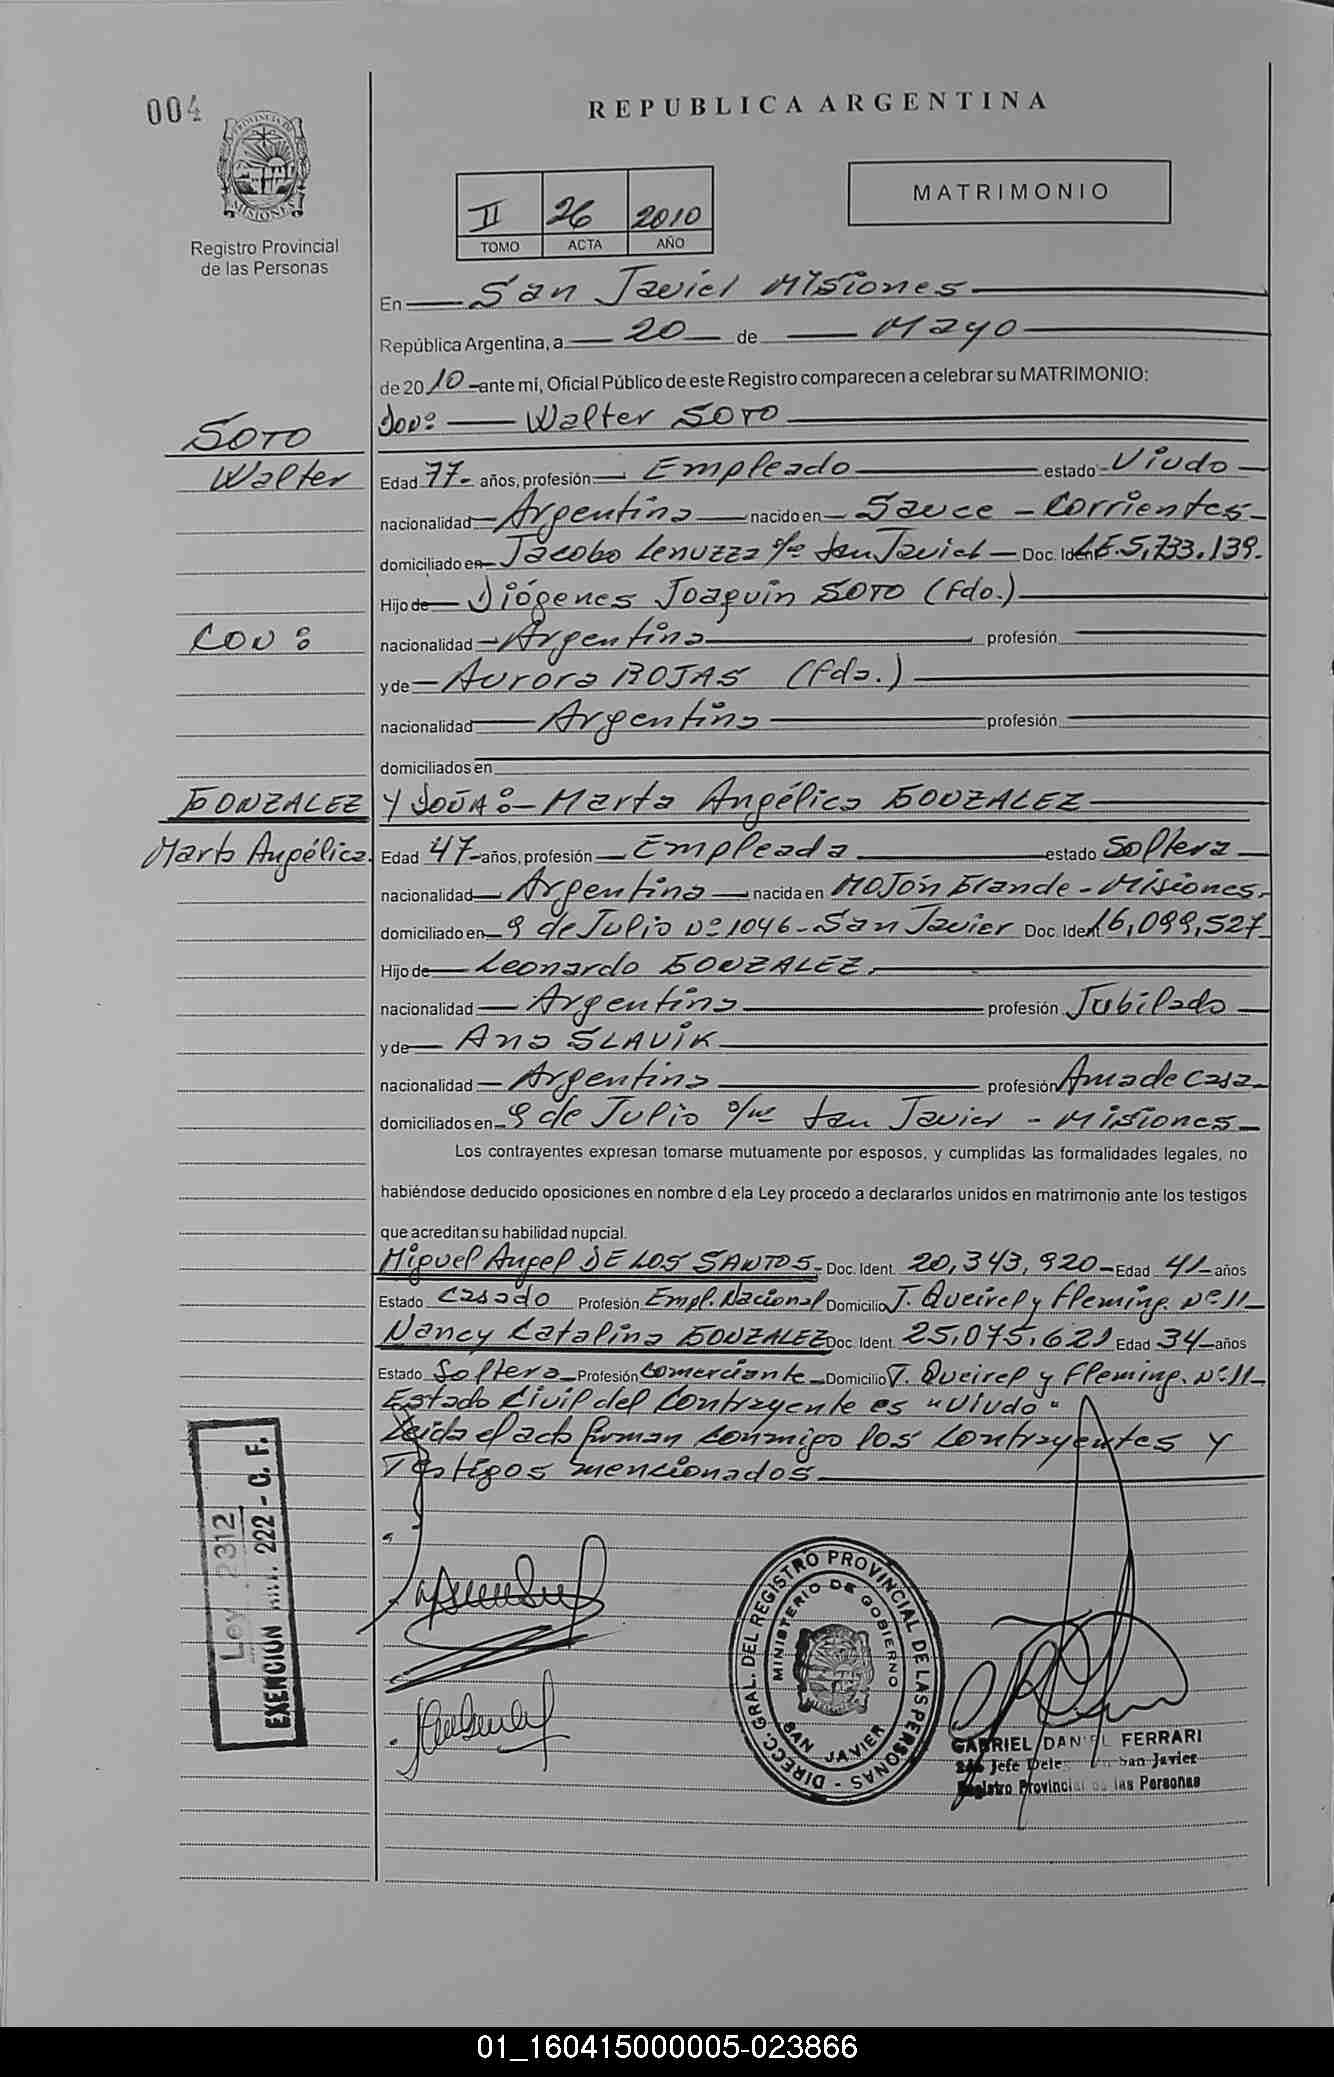 004
REPUBLICA ARGENTINA
PROVINCIA DE
MISIONES
Registro Provincial
de las Personas
II 26 2010
TOMO ACTA AÑO
MATRIMONIO
En San Javier Misiones
República Argentina, a 20 de Mayo
de 2010 ante mi, Oficial Público de este Registro comparecen a celebrar su MATRIMONIO:
SOTO
Don: Walter SOTO
Walter
Edad 77- años, profesión Empleado estado Viudo
nacionalidad Argentina nacido en Sauce - Corrientes
domiciliado en Jacobo Lenuzza s/nº San Javier Doc. Ident. L.E. 5,733.139.
Hijo de Diógenes Joaquin SOTO (fdo.)
CON:
nacionalidad Argentina profesión
y de Aurora ROJAS (fda.)
nacionalidad Argentina profesión
domiciliados en
GONZALEZ
Y DOÑA: Marta Angélica GONZALEZ
Marta Angélica.
Edad 47 años, profesión Empleada estado Soltera
nacionalidad Argentina nacida en Mojón Grande - Misiones.
domiciliado en 9 de Julio Nº 1046 - San Javier Doc. Ident. 16,099,527
Hijo de Leonardo GONZALEZ.
nacionalidad Argentina profesión Jubilado
y de Ana SLAVIK
nacionalidad Argentina profesión Ama de casa
domiciliados en 9 de Julio s/nº San Javier - Misiones
Los contrayentes expresan tomarse mutuamente por esposos, y cumplidas las formalidades legales, no
habiéndose deducido oposiciones en nombre d ela Ley procedo a declararlos unidos en matrimonio ante los testigos
que acreditan su habilidad nupcial.
Miguel Angel DE LOS SANTOS Doc. Ident. 20,343,920 Edad 41 años
Estado Casado Profesión Empl. Nacional Domicilio J. Queirel y Fleming. Nº 11
Nancy Catalina GONZALEZ Doc. Ident. 25,075,621 Edad 34 años
Estado Soltera Profesión Comerciante Domicilio J. Queirel y Fleming. Nº 11
Estado Civil del Contrayente es "Viudo"
Leida el acta firman conmigo los Contrayentes y
Testigos mencionados
Ley 2312
EXENCION 222 - C. F.
DIRECC. GRAL. DEL REGISTRO PROVINCIAL DE LAS PERSONAS
MINISTERIO DE GOBIERNO
SAN JAVIER
GABRIEL DANIEL FERRARI
Jefe San Javier
Registro Provincial de las Personas
01_160415000005-023866